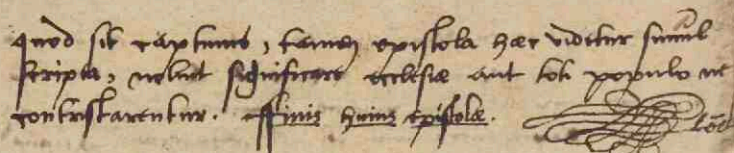 quod sit captiuus, tamen epistola haec videtur simul
scripta, noluit significare ecclesiae aut toti populo ne
contristarentur. Finis huius epistolae.